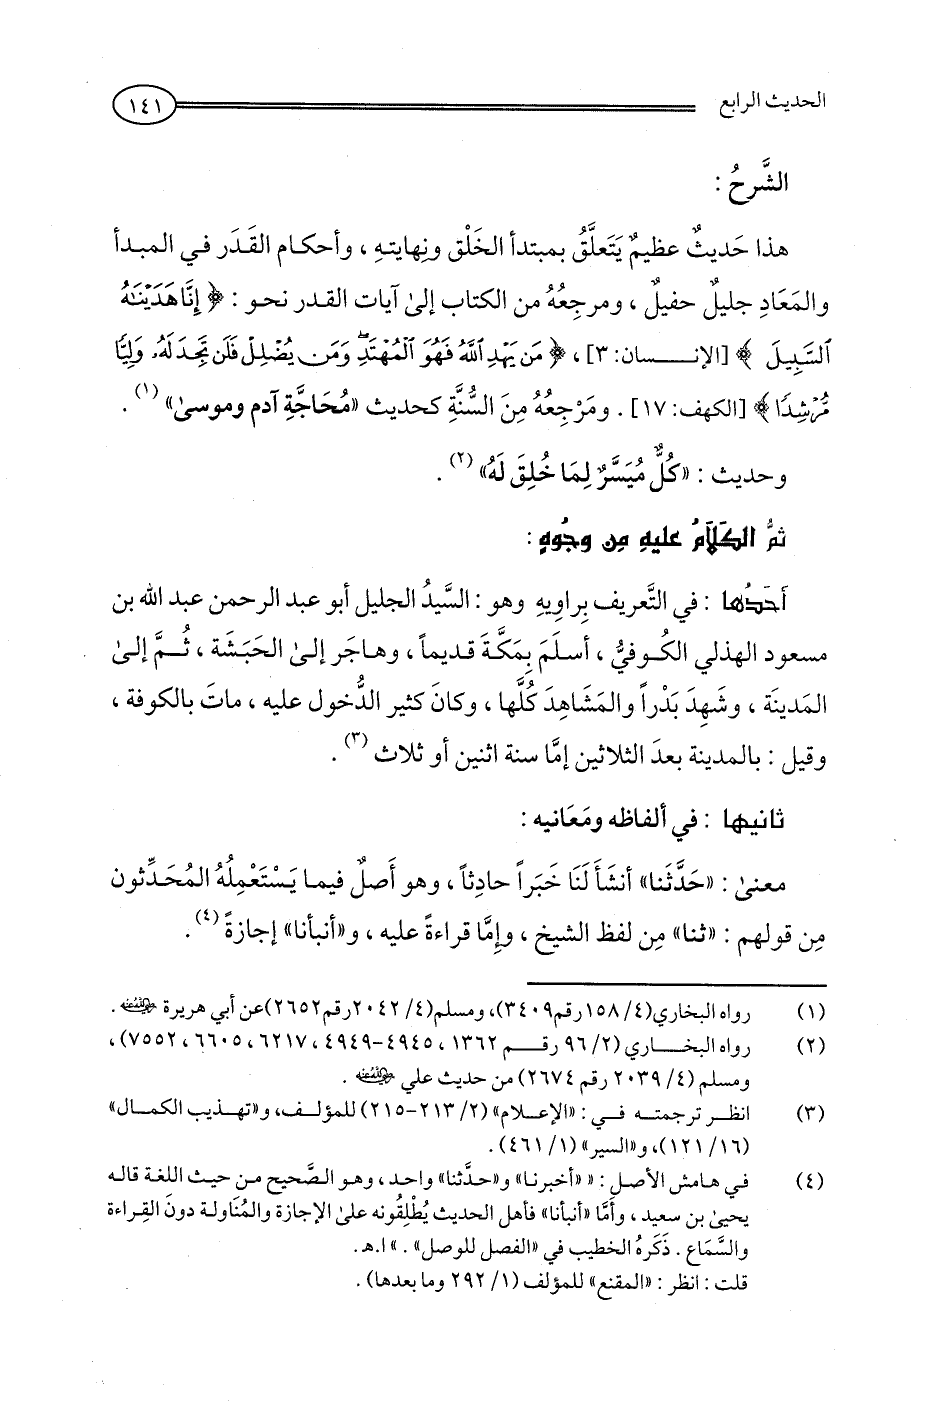 الحديث الرابع ١٤١
الشَّرحُ :
هذا حَديثٌ عظيمٌ يَتَعلَّقُ بمبتدأ الخَلْق ونِهايتهِ ، وأحكام القَدَر في المبدأ
والمَعَادِ جليلٌ حفيلٌ ، ومرجِعُهُ من الكتاب إلىٰ آيات القدر نحو : ﴿ إِنَّا هَدَيْنَٰهُ
ٱلسَّبِيلَ ﴾ [الإنسان: ٣] ، ﴿ مَن يَهْدِ ٱللَّهُ فَهُوَ ٱلْمُهْتَدِۖ وَمَن يُضْلِلْ فَلَن تَجِدَ لَهُۥ وَلِيًّا
مُّرْشِدًا ﴾ [الكهف: ١٧] . ومَرْجِعُهُ مِنَ السُّنَّةِ كحديث «مُحَاجَّةِ آدم وموسىٰ» (١) .
وحديث : «كُلٌّ مُيَسَّرٌ لِمَا خُلِقَ لَهُ» (٢) .
ثمَّ الكَلَامُ عليهِ مِن وجُوهٍ :
أَحَدُها : في التَّعريف بِراوِيهِ وهو : السَّيدُ الجليل أبو عبد الرحمن عبد الله بن
مسعود الهذلي الكُوفيُّ ، أسلَمَ بِمَكَّةَ قديماً ، وهاجَر إلىٰ الحَبَشَة ، ثُمَّ إلىٰ
المَدينَة ، وشَهِدَ بَدْراً والمَشَاهِدَ كُلَّها ، وكانَ كثير الدُّخول عليه ، ماتَ بالكوفة ،
وقيل : بالمدينة بعدَ الثلاثين إمَّا سنة اثنين أو ثلاث (٣) .
ثانيها : في ألفاظه ومَعَانيه :
معنىٰ : «حَدَّثَنا» أنشَأَ لَنَا خَبَراً حادِثاً ، وهو أَصلٌ فيما يَسْتَعْمِلُهُ المُحَدِّثون
مِن قولهم : «ثنا» مِن لفظ الشيخ ، وإمَّا قراءةً عليه ، و«أنبأنا» إجازةً (٤) .
(١) رواه البخاري(٤/ ١٥٨رقم٣٤٠٩)، ومسلم(٤/ ٢٠٤٢رقم٢٦٥٢)عن أبي هريرة رضي الله عنه .
(٢) رواه البخاري (٢/ ٩٦ رقم ١٣٦٢ ، ٤٩٤٥-٤٩٤٩ ، ٦٢١٧ ، ٦٦٠٥ ، ٧٥٥٢) ،
ومسلم (٤/ ٢٠٣٩ رقم ٢٦٧٤) من حديث علي رضي الله عنه .
(٣) انظر ترجمته في : «الإعلام» (٢/ ٢١٣-٢١٥) للمؤلف، و«تهذيب الكمال»
(١٦/ ١٢١)، و«السير» (١/ ٤٦١) .
(٤) في هامش الأصل : « «أخبرنا» و«حدَّثنا» واحد ، وهو الصَّحيح من حيث اللغة قاله
يحيىٰ بن سعيد ، وأمَّا «أنبأنا» فأهل الحديث يُطْلِقُونه علىٰ الإجازة والمُنَاولة دونَ القِراءة
والسَّمَاع . ذَكَرهُ الخطيب في «الفصل للوصل» . » ا.هـ.
قلت : انظر : «المقنع» للمؤلف (١/ ٢٩٢ وما بعدها) .